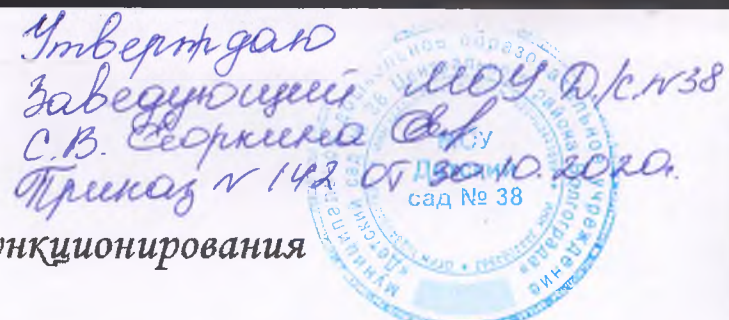 Утверждаю
Заведующий МОУ Д/с №38
С.В.
Приказ № 142 от 30.10.2020.
сад № 38
ункционирования